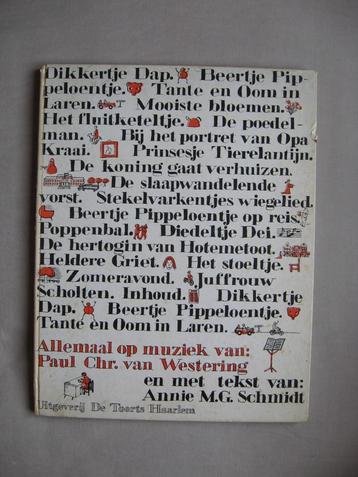 Dikkertje Dap. Beertje Pip-
peloentje. Tante en Oom in
Laren. Mooiste bloemen.
Het fluitketeltje. De poedel-
man. Bij het portret van Opa
Kraai. Prinsesje Tierelantijn.
De koning gaat verhuizen.
De slaapwandelende
vorst. Stekelvarkentjes wiegelied.
Beertje Pippeloentje op reis.
Poppenbal. Diedeltje Dei.
De hertogin van Hotemetoot.
Heldere Griet. Het stoeltje.
Zomeravond. Juffrouw
Scholten. Inhoud. Dikkertje
Dap. Beertje Pippeloentje.
Tante en Oom in Laren.
Allemaal op muziek van:
Paul Chr. van Westering
en met tekst van:
Annie M.G. Schmidt
Uitgeverij De Toorts Haarlem